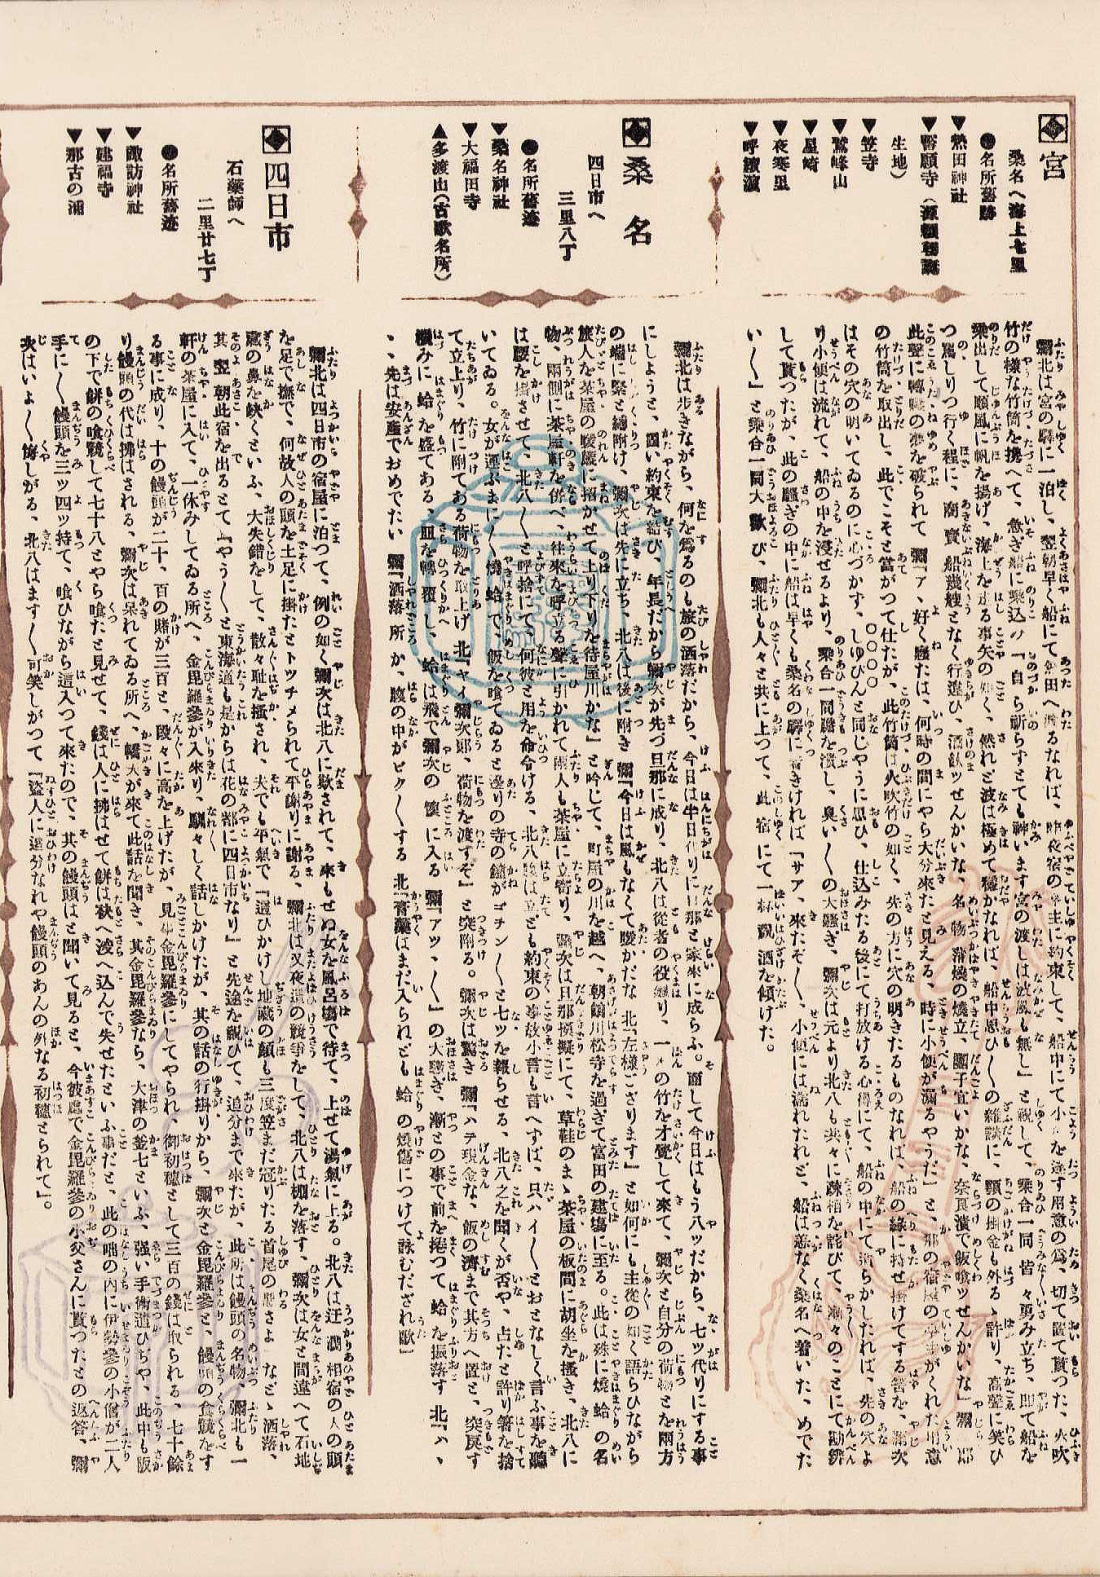 宮
桑名へ海上七里
●名所舊跡
▼熱田神社
▼誓願寺(源頼朝誕
生地)
▼笠寺
▼鷲峰山
▼星崎
▼夜寒里
▼呼續濱
彌北は宮の驛に一泊し、翌朝早く船にて
竹の樣な竹筒を携へて、急ぎ船に乘込
乘出して順風に帆を揚げ、海上を走る事矢の如く、然れど波は極めて穩かなれば、船中思ひ〳〵の雜談に、顎の掛金も外る許り、高聲に笑ひ
つ罵しりつ行く程に、
の竹筒を取出し、此でこそと當がつて仕たが、此竹筒は火吹竹の如く、先の方に穴の明きたるものなれば、船の緣に持せ掛けてする筈を、彌次
はその穴の明いてゐるのに心づかず、しゆびんと同じやうに思ひ、仕込みたる後にて打放ける心得にて、船の中にて
り小便は流れて、船の中を浸せるより、乘合一同膽を潰し、臭い〳〵の大騷ぎ、彌次は元より北八も共々に疎相を詫びて、漸々のことにて勘辨
して貰つたが、此の騷ぎの中に船は早くも桑名の驛に着きければ『サア、來たぞ〳〵、小便には濡れたれど、船は恙なく桑名へ着いた、めでた
い〳〵』と乘合一同大歡び、彌北も人々と共に上つて、此宿にて一杯飄酒を傾けた。
桑名
四日市へ
三里八丁
●名所舊迹
▼桑名神社
▼大福田寺
▲多渡山(古歌名所)
彌北は步きながら、何を爲るのも旅の洒落だから、今日は半日代りに旦那と家來に成らふ。而して今日はもう八ツだから、七ツ代りにする事
にしようと、固い約束を結び、年長だから彌次が先づ旦那に成り、北八は從者の役
の端に緊と縛附け、彌次は先に立ち、北八は後に附き 彌『今日は風もなくて暖かだな 北『左樣ござります』と如何にも主從の如く語らひながら
旅人を茶屋の暖簾に招かせて上り下りを待屋川かな』と吟じて、町屋の川を越へ、朝鶴川松寺を過ぎて富田の建場に至る。此は殊に燒蛤の名
物、兩側に茶屋軒を倂べ、往來を呼立る聲に引かれて兩人も茶屋に立寄り、彌次は旦那擬にて、草鞋のまゝ茶屋の板間に胡坐を搔き、北八に
は腰を掛させて、北八〳〵と呼捨にて、何彼と用を命令ける、北八腹は立ども約束の事故小言も言へずば、只ハイ〳〵とおとなしく言ふ事を聽
いてゐる。女が運ぶまに〳〵燒蛤で、飯を喰てゐると邊りの寺の鐘がゴチン〳〵と七ツを報らせる、北八之を聞くが否や、占たと許り箸を捨
て立上り、竹に附てある荷物を取上げ 北『ヤイ彌次郎、荷物を渡すぞ』と突附る。彌次は驚き 彌『ハテ現金な、飯の濟まで其方へ置と、突戾す
機みに蛤を盛てある、皿を轉ツ覆し、蛤は飛で彌次の懷に入る 彌『アツ、〳〵』の大騷ぎ、漸との事で前を捲つて、蛤を振落す 北『ハ、
、、先は安產でおめでたい 彌『洒落所か、腹の中がピク〳〵する 北『膏藥はまだ入られども蛤の燒傷につけて詠むだざれ歌』
四日市
石藥師へ
二里廿七丁
●名所舊迹
▼諏訪神社
▼建福寺
▼那古の浦
彌北は四日市の宿屋に泊つて、例の如く彌次は北八に欺されて、來もせぬ女を風呂塲で待て、上せて湯氣に上る。北八は迂濶相宿の人の頭
を足で撫で、何故人の頭を土足に掛たとトツチメられて平謝りに謝る、彌北は又夜這の競爭をして、北八は棚を落す、彌次は女と間違へて石地
藏の鼻を缺くといふ、大失錯をして、散々耻を搔され、夫でも平氣で『這ひかけし地藏の顏も三度笠まだ冠りたる首尾の惡さよ』など〻洒落、
其翌朝此宿を出るとて『やう〳〵と東海道も是からは花の都に四日市なり』と先途を祝びて、追分まで來たが、此所は饅頭の名物、彌北も一
軒の茶屋に入て、一休みしてゐる所へ、金毘羅參が入來り、馴々しく話しかけたが、其の話の行掛りから、彌次と金毘羅參と、饅頭の食競をす
る事に成り、十の饅頭が二十、百の賭が三百と、段々に高を上げたが、見事金毘羅參にしてやられ、御初穗として三百の錢は取られる、七十餘
り饅頭の代は拂はされる、彌次は呆れてゐる所へ、轎夫が來て此話を聞き、其金毘羅參なら、大津の釜七といふ、强い手術遣ひちや、此中も阪
の下で餠の喰競して七十八とやら喰たと見せて、錢は人に拂はせて餠は袂へ浚へ込んで失せたといふ事だと、此の咄の內に伊勢參の小僧が二人
手に〳〵饅頭を三ツ四ツ持て、喰ひながら這入つて來たので、其の饅頭はと聞いて見ると、今彼處で金毘羅參の小父さんに貰つたとの返答、彌
次はいよ〳〵悔しがる、北八はます〳〵可笑しがつて『盜人に追分なれや饅頭のあんの外なる初穗とられて』。